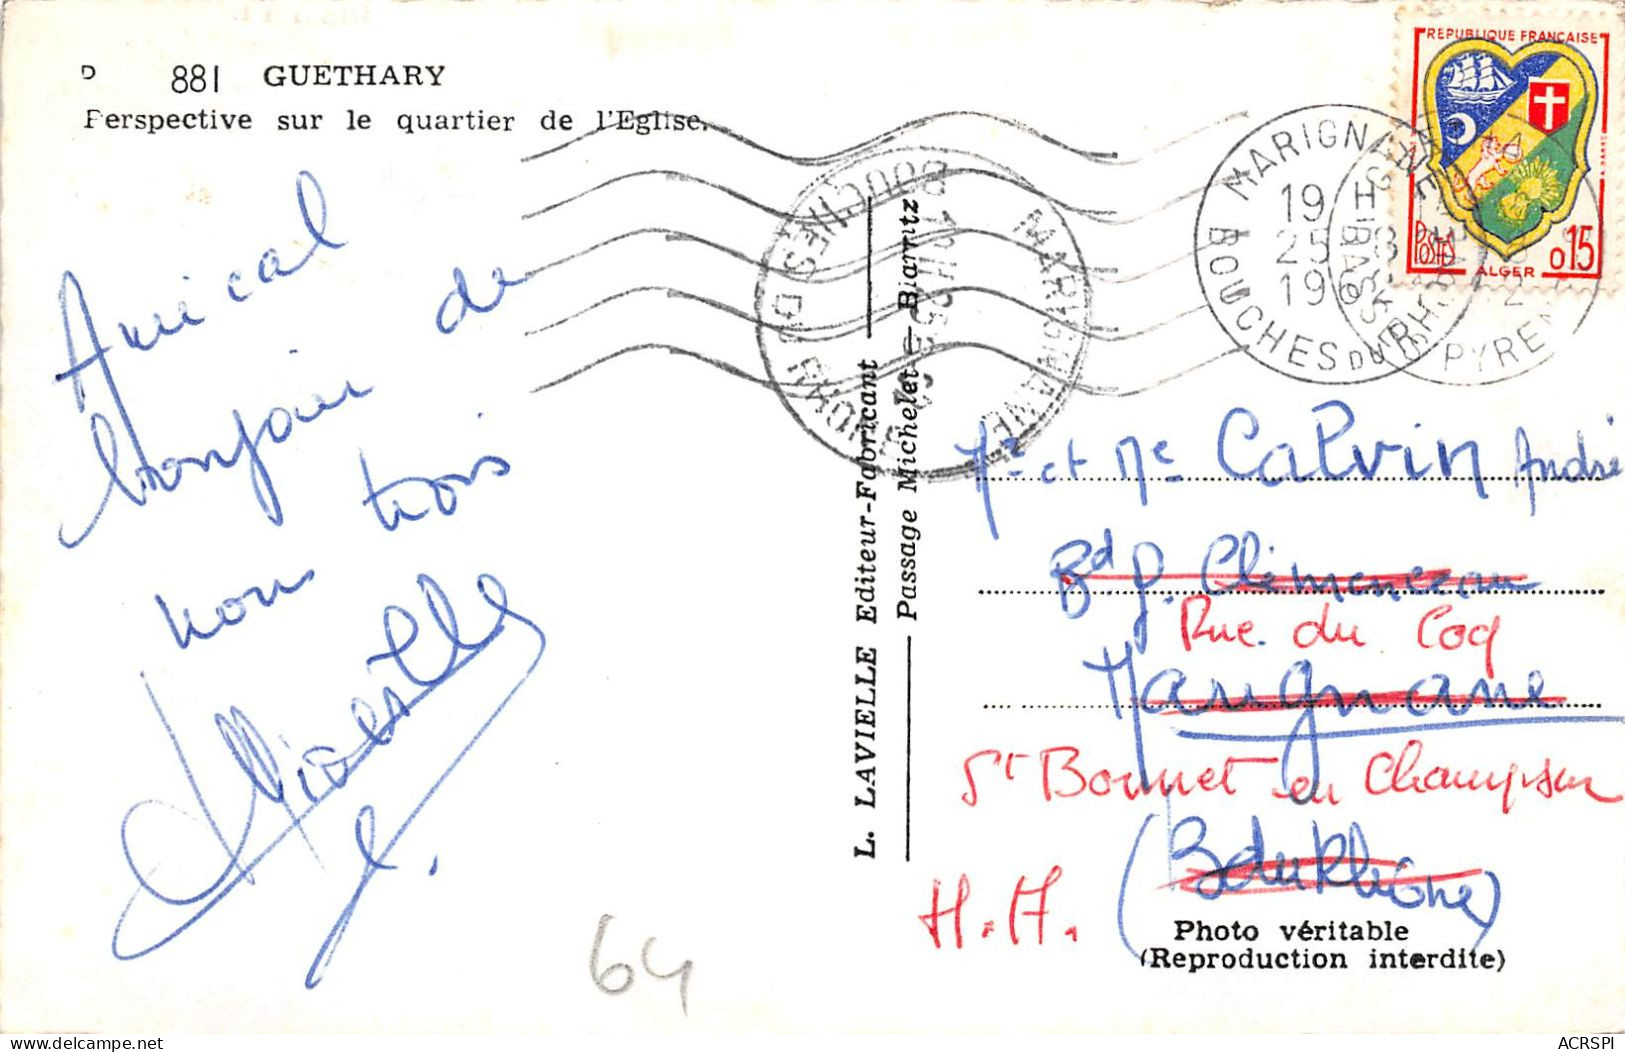 D 881 GUETHARY
Perspective sur le quartier de l'Eglise.
REPUBLIQUE FRANÇAISE
POSTES
ALGER
0,15
MARIGNANE
19
25
19
BOUCHES DU RHONE
MARIGNANE
BOUCHES DU RHONE
Amical
bonjour de
nous trois
L. LAVIELLE Editeur-Fabricant
Passage Michelet - Biarritz
Mr et Me Calvin André
Bd G. Clémenceau
Rue du Coq
Marignane
St Bonnet en Champsaur
(B du Rhône)
H.A.
Photo véritable
(Reproduction interdite)
64
ACRSPI